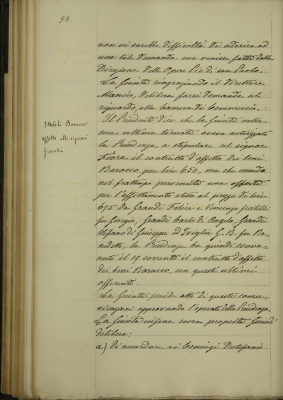 98.
non vi sarebbe difficoltà di aderire ad
una tale domanda ove venisse fatta dalla
Direzione delle Opere Pie di San Paolo.
La Giunta ringraziando il Direttore
delibera farsi domanda al
riguardo, alla Camera di Commercio.
Stabili Baracco
affitto alli signori
Grandi
Il Presidente dice che la Giunta nella
sua ultima tornata aveva autorizzato
la Presidenza, a stipulare col signor
Fiora il contratto d'affitto dei beni
Baracco per lire 650, ma che essendo
nel frattempo pervenuta una offerta
per l'affittamento stesso al prezzo di lire
695 da Grandi Felice e Vincenzo fratelli
fu Giorgio, Grandi Carlo di Angelo, Grandi
Stefano di Giuseppe ed G. B. fu
la Presidenza ha quindi
il 19 corrente il contratto d'affitto
dei beni Baracco, con questi ultimi
offerenti.
La Giunta prende atto di queste comu-
nicazioni approvando l'operato della Presidenza.
La Giunta infine sovra proposta
delibera:
a) Di accordare ai coniugi